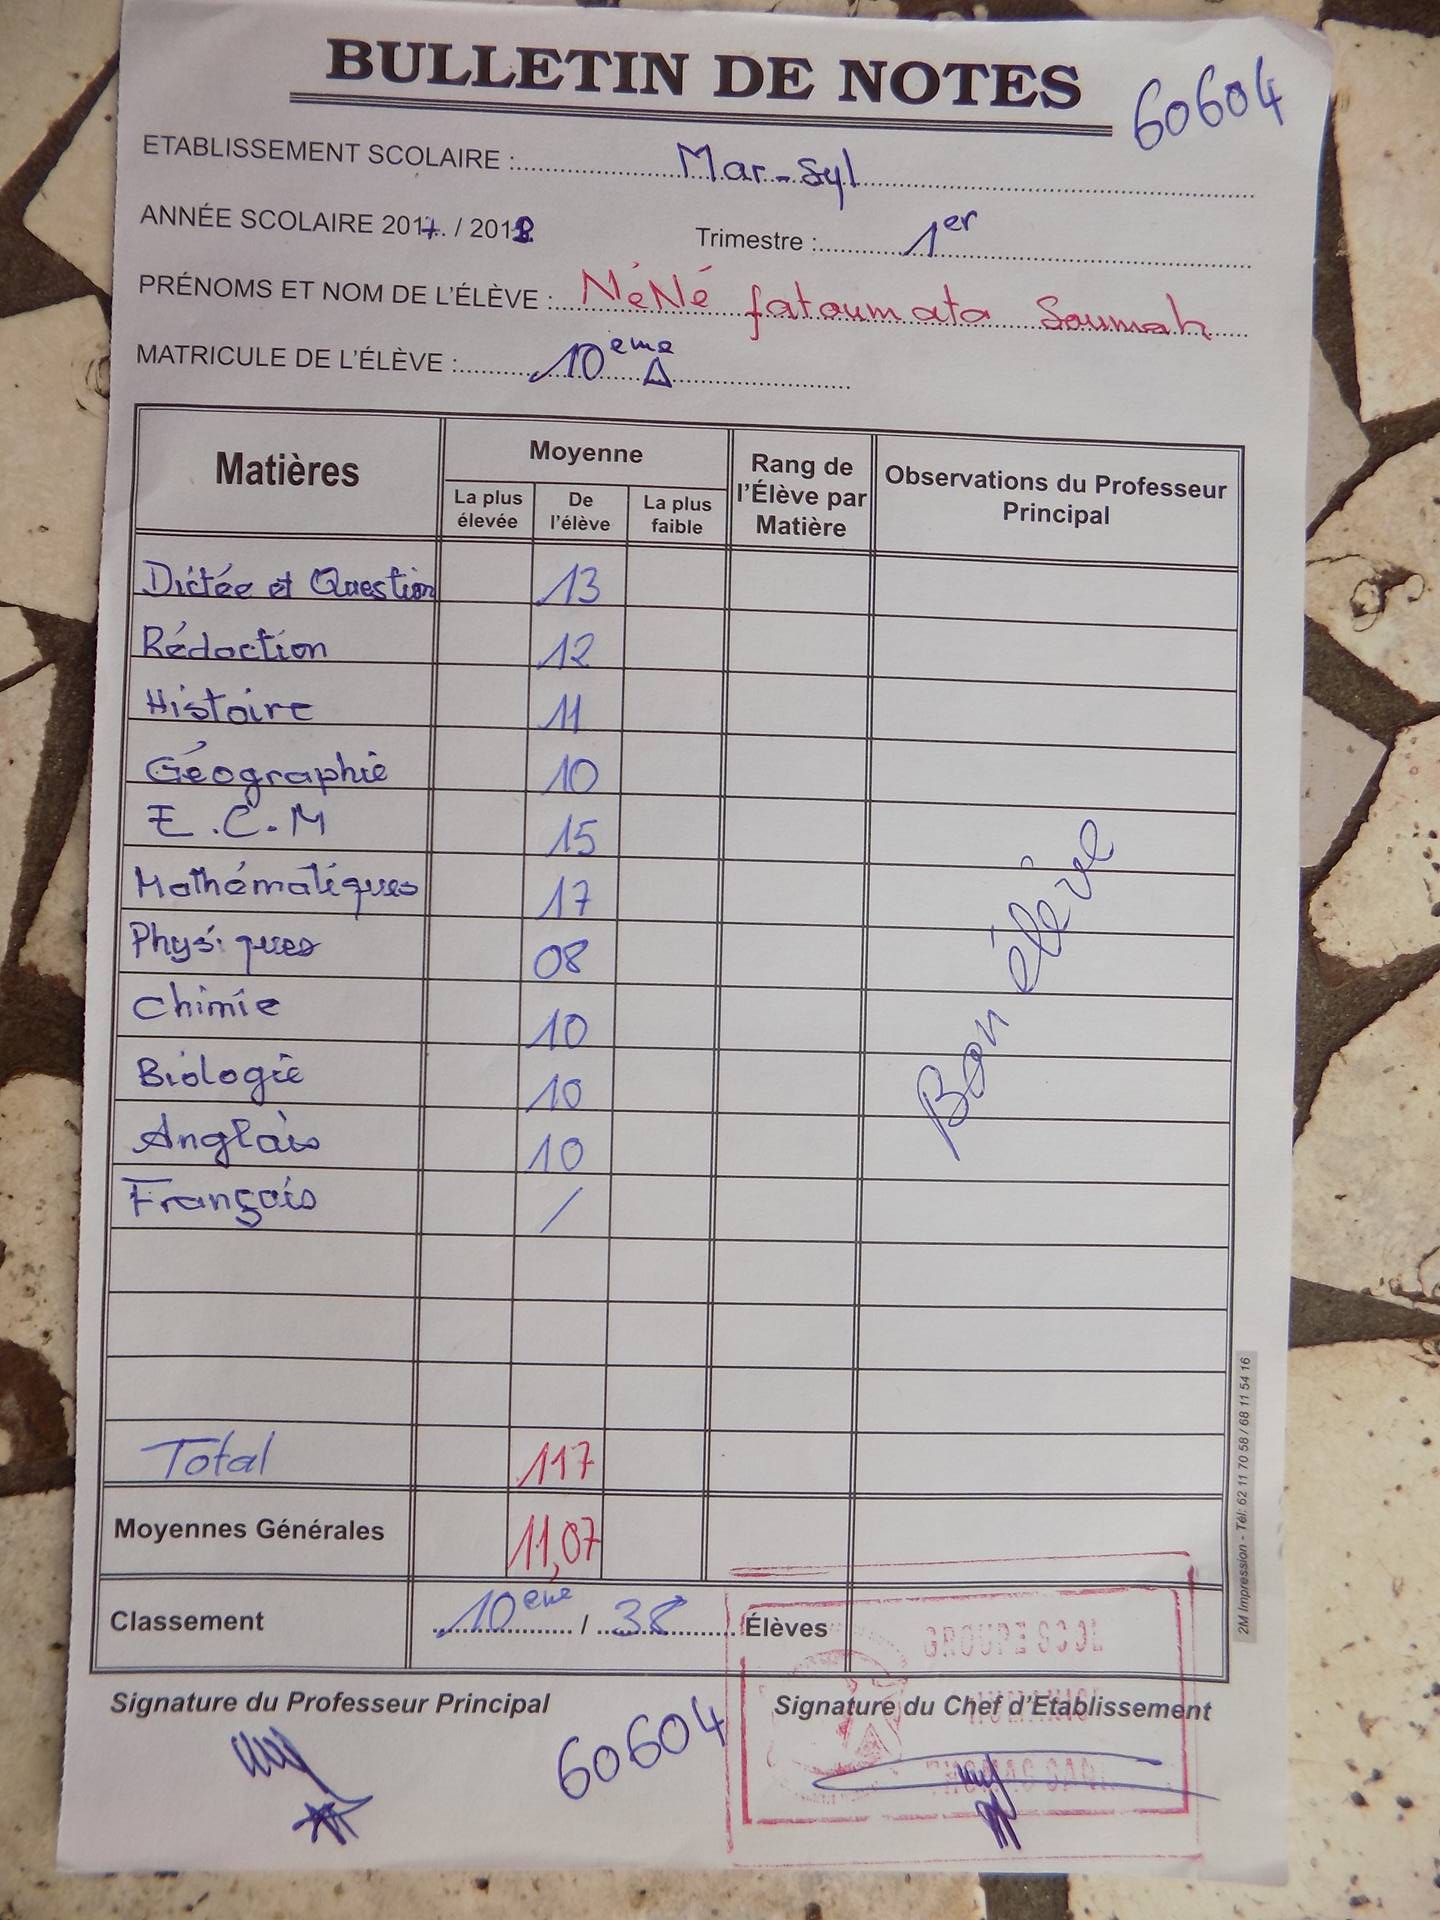 BULLETIN DE NOTES
60604
ETABLISSEMENT SCOLAIRE : Mar-Syl
ANNÉE SCOLAIRE 2017 / 2018 Trimestre : 1er
PRÉNOMS ET NOM DE L'ÉLÈVE : NéNé fatoumata Soumah
MATRICULE DE L'ÉLÈVE : 10ème A
Matières Moyenne Rang de l'Élève par Matière Observations du Professeur Principal
La plus élevée De l'élève La plus faible
Dictée et Question 13
Rédaction 12
Histoire 11
Géographie 10
E.C.M 15
Mathématiques 17
Physiques 08
Chimie 10
Biologie 10
Anglais 10
Français /
Bon élève
Total 117
Moyennes Générales 11,07
Classement 10ème / 38 Élèves
GROUPE SCOL
Signature du Professeur Principal Signature du Chef d'Etablissement
60604
2M Impression - Tél: 62 11 70 58 / 68 11 54 16